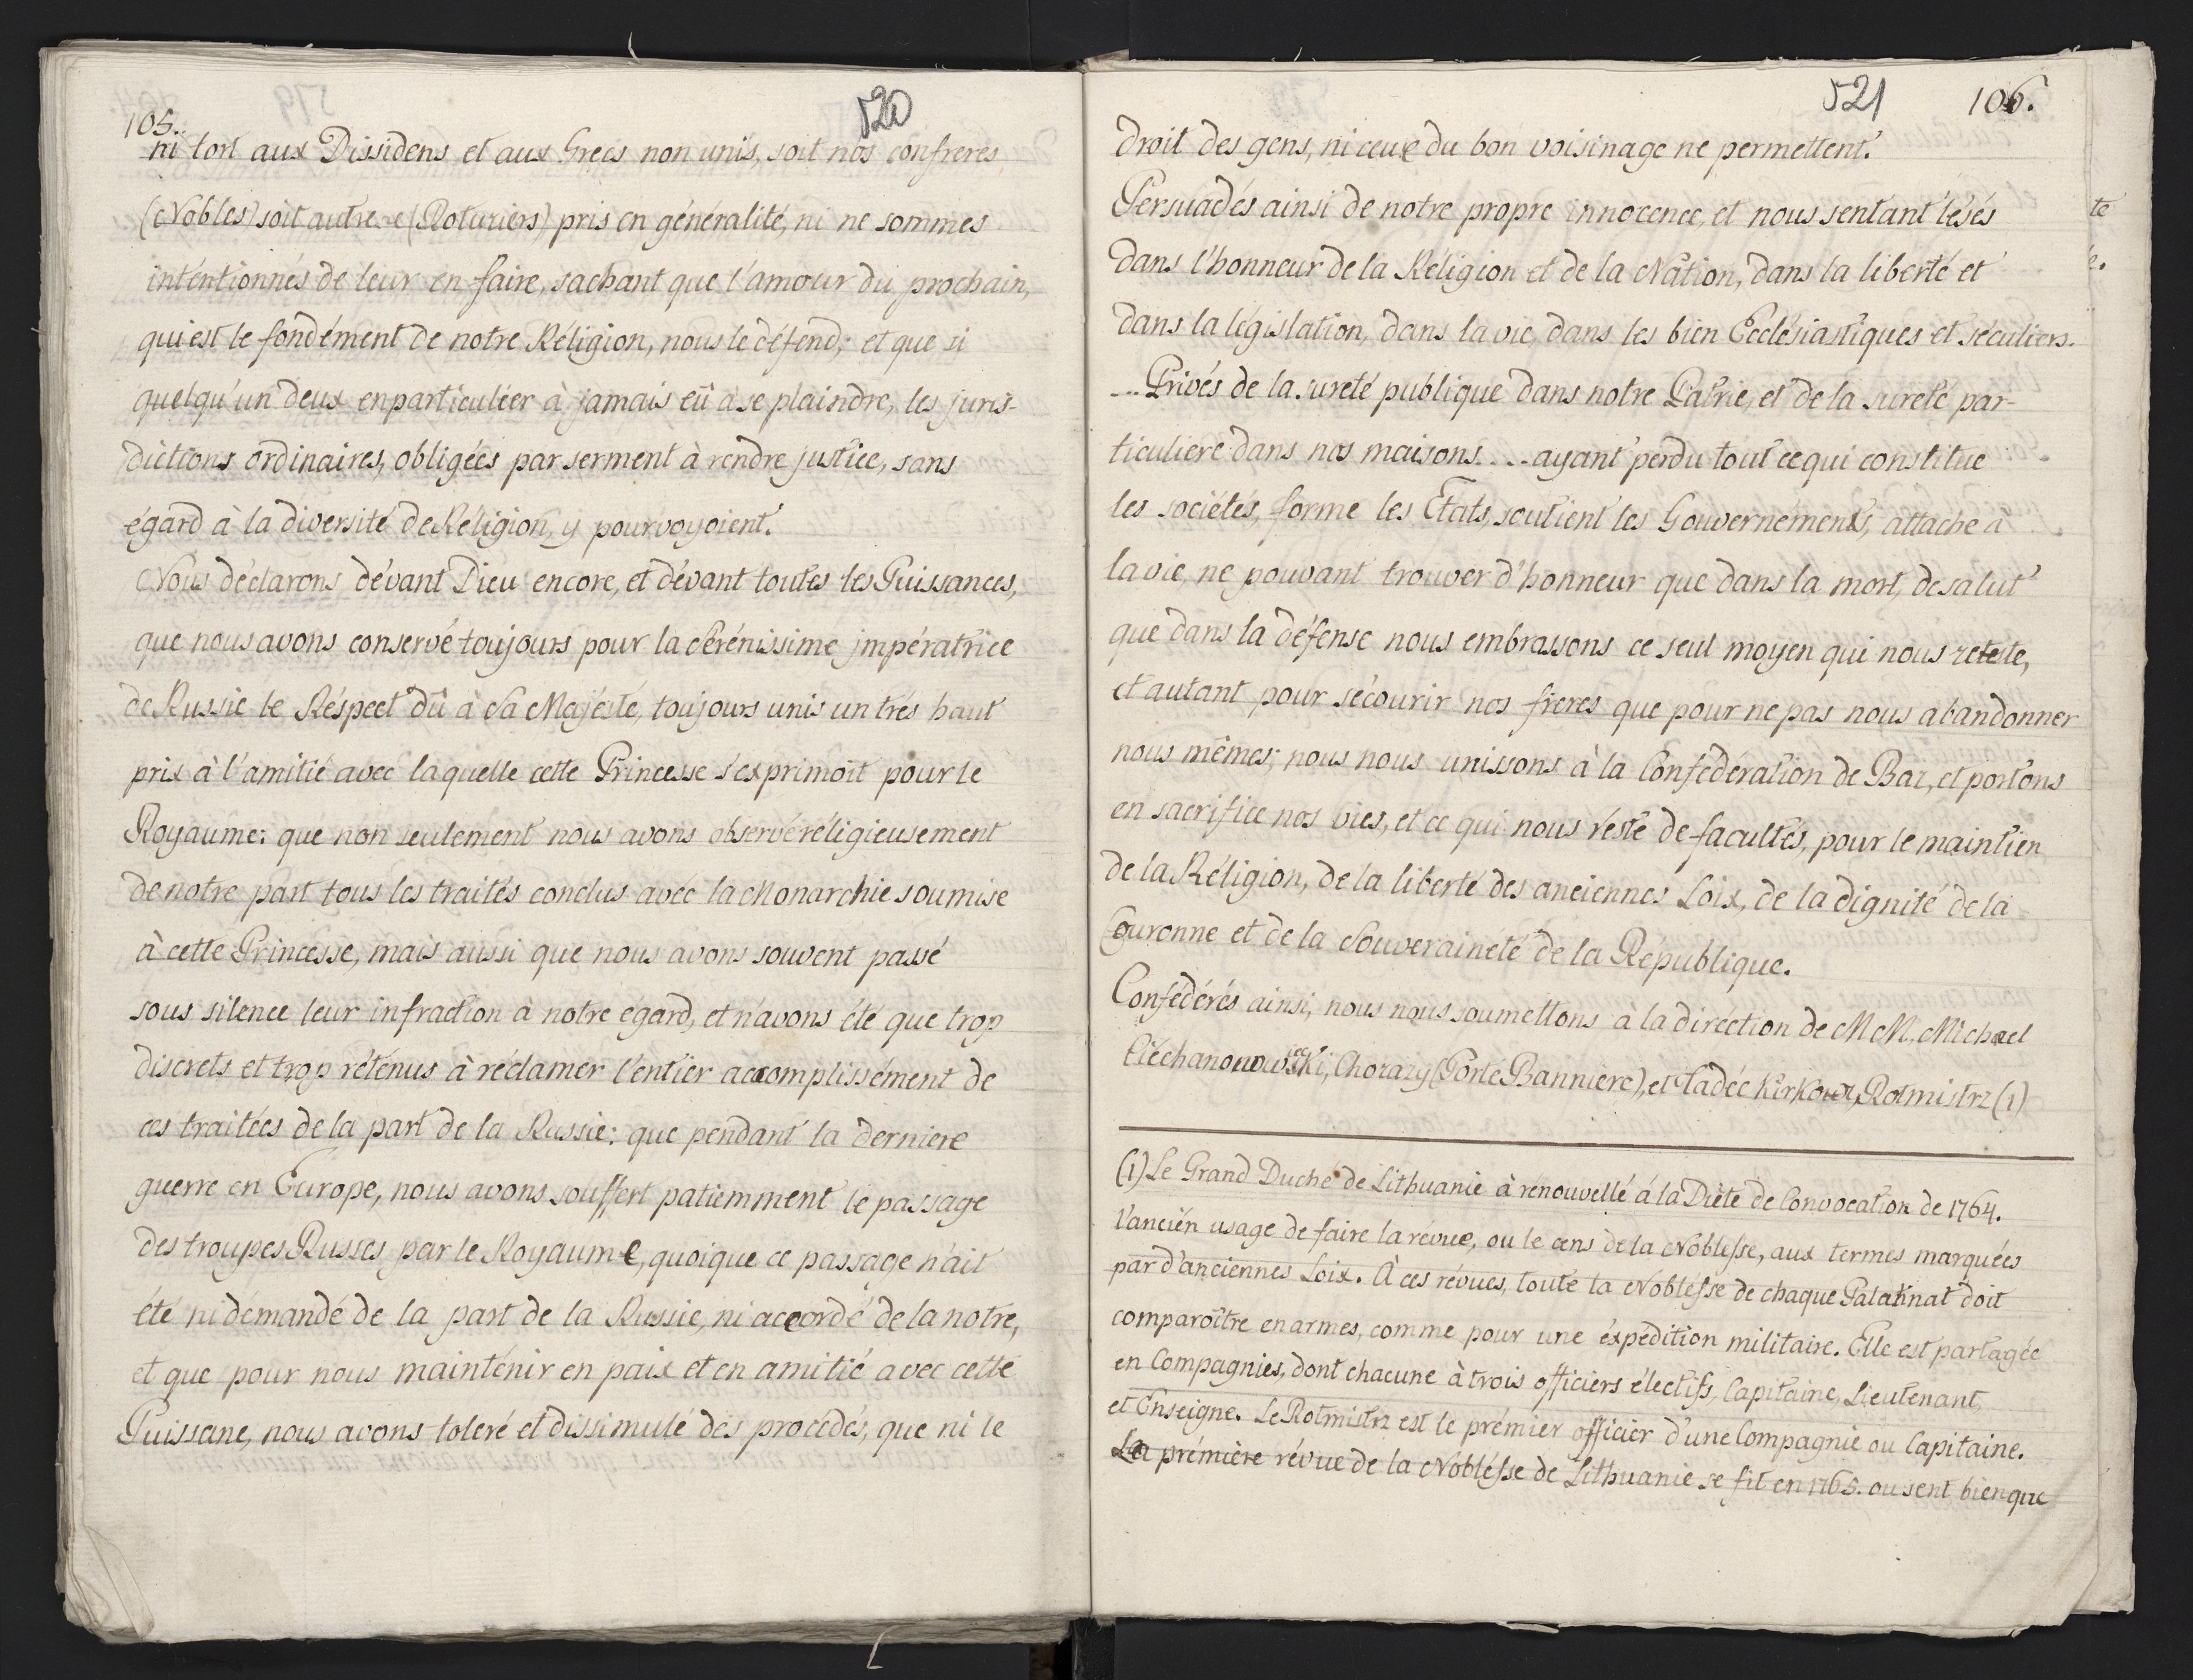 105.
520
ni tort aux Dissidens et aux Grecs non unis, soit nos confreres
(Nobles) soit autre (Roturiers) pris en généralité, ni ne sommes
inténtionnés de leur en faire, sachant que l'amour du prochain,
qui est le fondément de notre Réligion, nous le défend; et que si
quelqu'un deux enparticuléer à jamais eû à se plaindre, les juris-
dictions ordinaires, obligées par serment à rendre justice, sans
égard à la diversité de Réligion, y pourvoyoient.
Nous déclarons dévant Dieu encore, et dévant toutes les Puissances,
que nous avons conservé toujours pour la Sérénissime jmpératrice
de Russie le Réspect dû à Sa Majésté, toujours unis un trés haut
prix à l'amitié avec laquelle cette Princesse s'exprimoit pour le
Royaume: que non seulement nous avons observé réligieusement
de notre part tous les traités conclus avéc la Monarchie soumise
à cette Princesse, mais aussi que nous avons souvent passé
sous silence leur infraction à notre égard, et n'avons été que trop
discrets et trop réténus à réclamer l'entier accomplissément de
ces traitées de la part de la Russie: que pendant la derniere
guerre en Europe, nous avons souffert patiemment le passage
des troupes Russes par le Royaume, quoique ce passage n'ait
été ni démandé de la part de la Russie, ni accordé de la notre,
et que pour nous mainténir en paix et en amitié avec cette
Puissane, nous avons toleré et dissimulé des procédés, que ni le
521
106.
droit des gens, ni ceux du bon voisinage ne permettent.
Persuadés ainsi de notre propre innocence, et nous sentant lésés
dans l'honneur de la Réligion et de la Nation, dans la liberté et
dans la législation, dans la vie, dans les bien Ecclésiastiques et séculiers.
... Privés de la sureté publique dans notre Patrie, et de la sureté par-
ticuliere dans nos maisons.... ayant perdu tout ce qui constitue
les sociétés, forme les Etats, soutient les Gouvernéments, attache à
la vie, ne pouvant trouver d'honneur que dans la mort, de salut
que dans la défense nous embrassons ce seul moyen qui nous reteste,
et autant pour sécourir nos freres que pour ne pas nous abandonner
nous mêmes; nous nous unissons à la Conféderation de Bar, et portons
en sacrifice nos vies, et ce qui nous réste de facultés, pour le maintien
de la Réligion, de la liberté des anciennes Loix, de la dignité de la
Couronne et de la Souveraineté de la République.
Conféderés ainsi, nous nous soumettons à la diréction de M M. Michael
Chorazy (Porte Banniere), et Tadée Rotmistrz (1)
(1) Le Grand Duché de Lithuanie à rénouvellé á la Diète de Convocation de 1764.
l'ancién usage de faire la révue, ou le cens de la Noblesse, aux termes marquées
par d'anciennes Loix. À ces révues, toute la Noblésse de chaque Palatinat doit
comparoître en armes, comme pour une éxpédition militaire. Elle est partagée
en Compagnies, dont chacune à trois officiers électifs, Capitaine, Lieutenant,
et Enseigne. Le Rotmistrz est le prémier officier d'une Compagnie ou Capitaine.
La prémière révue de la Noblésse de Lithuanie se fit en 1765. ou sent bien que
té
é.